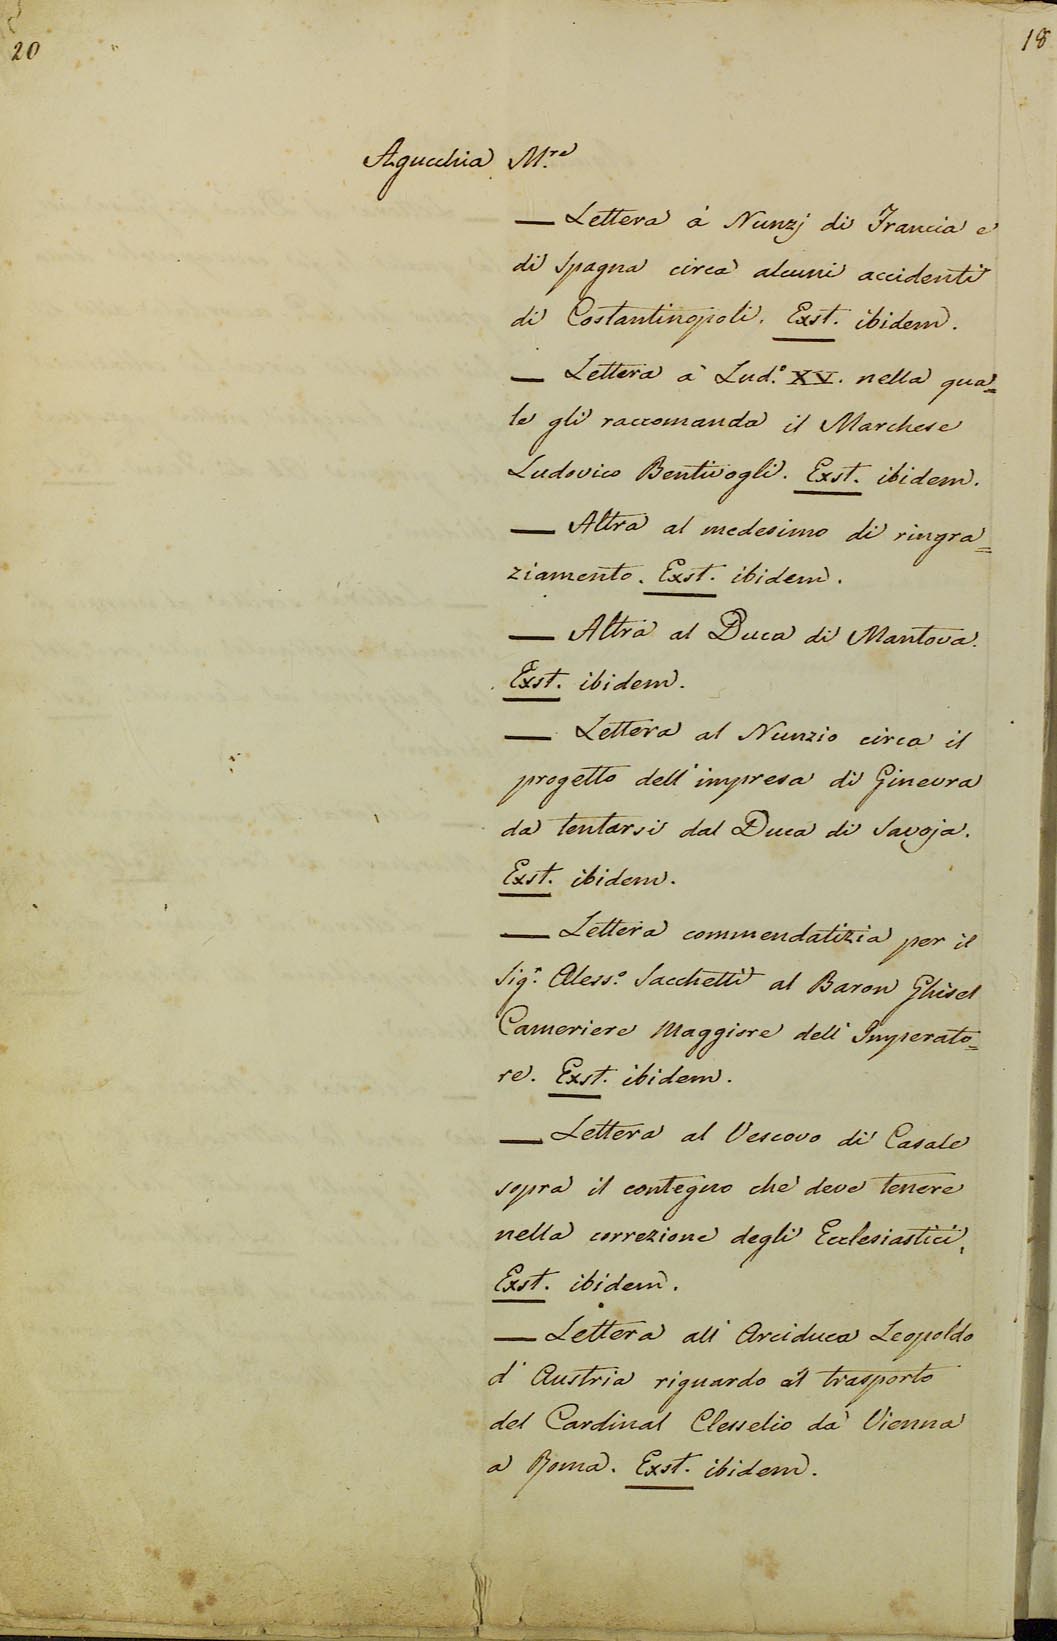 20
18
Agucchia M.re
— Lettera à Nunzj di Francia e
di Spagna circa alcuni accidenti
di Costantinopoli. Exst. ibidem.
— Lettera a Lud.o XV. nella qua=
le gli raccomanda il Marchese
Ludovico Bentivogli. Exst. ibidem.
— Altra al medesimo di ringra=
ziamento. Exst. ibidem.
— Altra al Duca di Mantova.
Exst. ibidem.
— Lettera al Nunzio circa il
progetto dell'impresa di Ginevra
da tentarsi dal Duca di Savoja.
Exst. ibidem.
— Lettera commendatizia per il
Sig.r Aless.o Sacchetti al Baron Ghisel
Cameriere Maggiore dell'Imperato=
re. Exst. ibidem.
— Lettera al Vescovo di Casale
sopra il contegno che deve tenere
nella correzione degli Ecclesiastici.
Exst. ibidem.
— Lettera all'Arciduca Leopoldo
d'Austria riguardo al trasporto
del Cardinal Clesselio da Vienna
a Roma. Exst. ibidem.